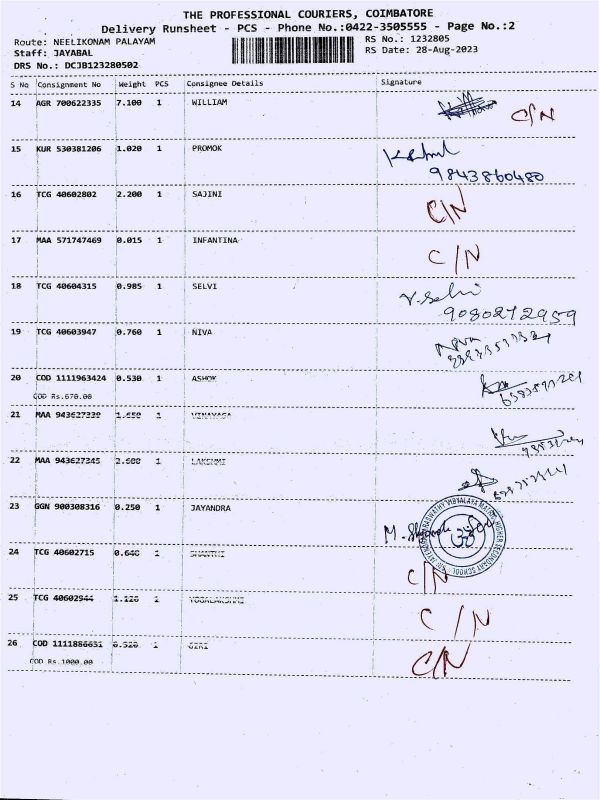 THE PROFESSIONAL COURIERS, COIMBATORE
Delivery Runsheet - PCS - Phone No.:0422-3505555 - Page No.:2
Route: NEELIKONAM PALAYAM RS No.: 1232805
Staff: JAYABAL RS Date: 28-Aug-2023
DRS No.: DCJB123280502
S No Consignment No Weight PCS Consignee Details Signature
14 AGR 700622335 7.100 1 WILLIAM C/N
15 KUR 530381206 1.020 1 PROMOK
9843860480
16 TCG 40602802 2.200 1 SAJINI C/N
17 MAA 571747469 0.015 1 INFANTINA C/N
18 TCG 40604315 0.985 1 SELVI V.Selvi
9080272959
19 TCG 40603947 0.760 1 NIVA
20 COD 1111963424 0.530 1 ASHOK
COD Rs.670.00
21 MAA 943627339 1.650 1 VINAYAGA
22 MAA 943627345 2.500 1 LAKSHMI
23 GGN 900308316 0.250 1 JAYANDRA M.
24 TCG 40602715 0.640 1 SHANTHI C/N
25 TCG 40602944 1.120 1 YOGALAKSHMI C/N
26 COD 1111886631 0.520 1 GIRI C/N
COD Rs.1000.00